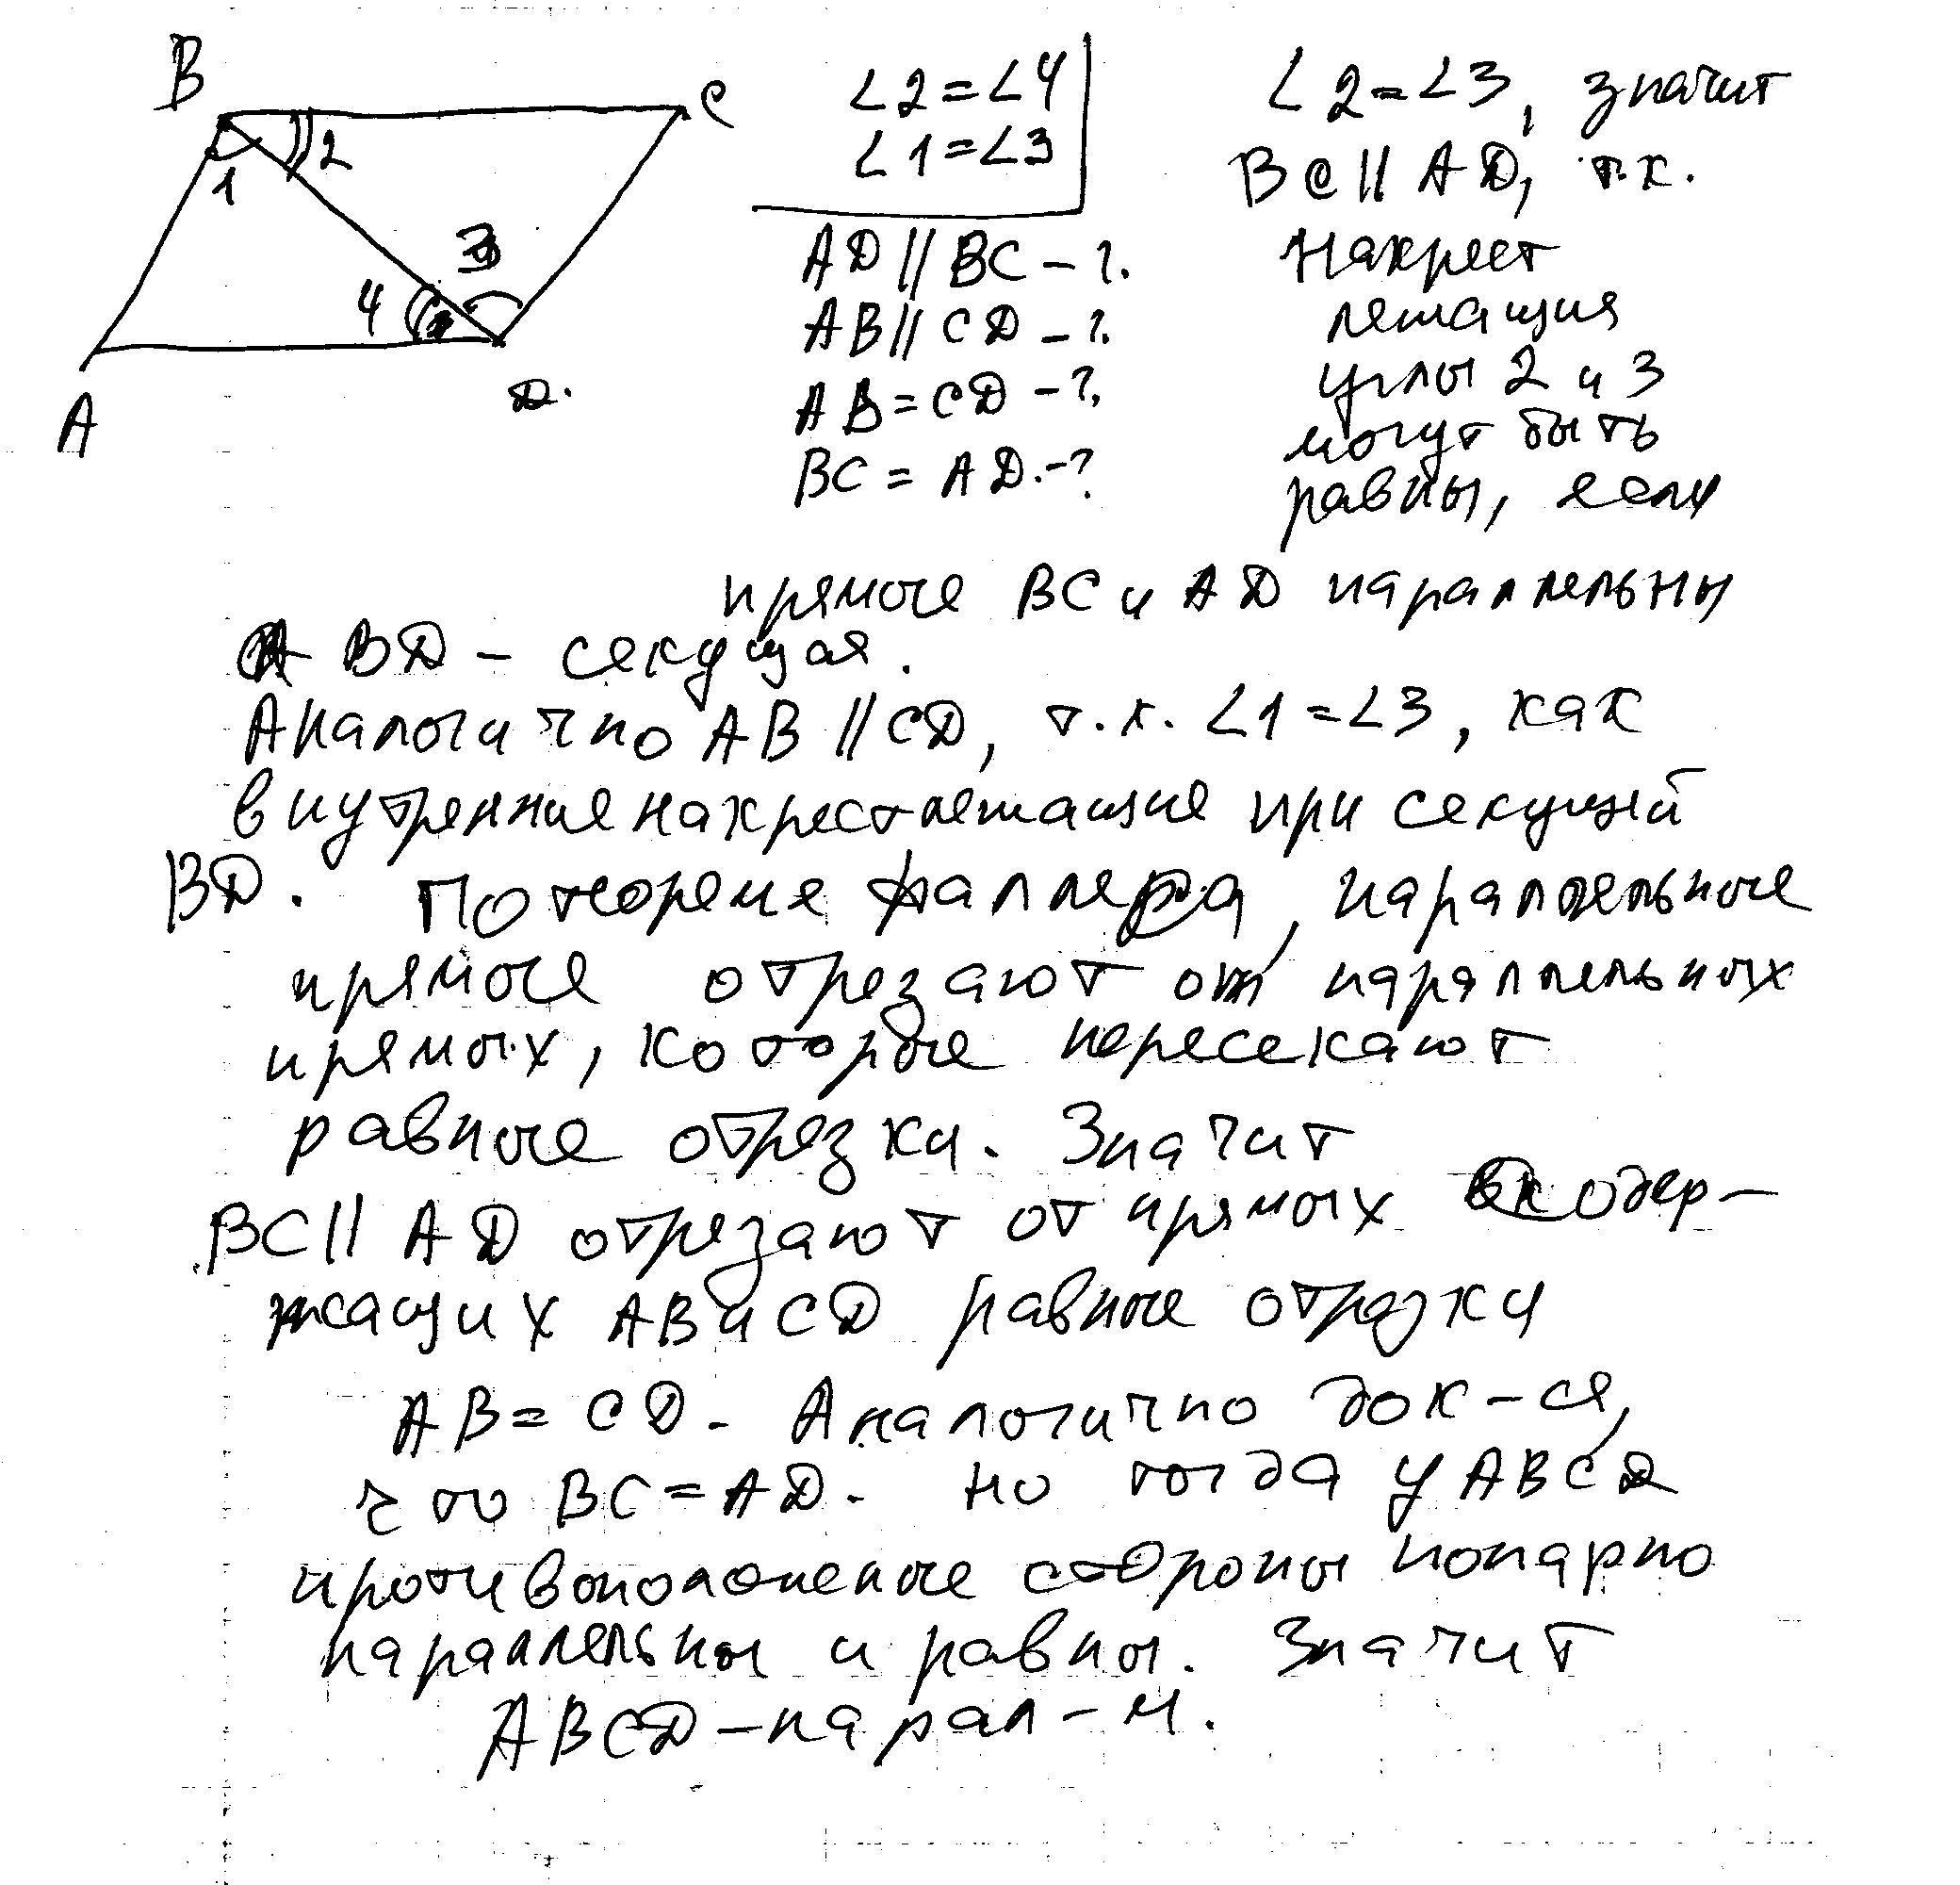 B
C
1
2
3
4
A
D.
∠2=∠4
∠1=∠3
AD || BC - ?.
AB || CD - ?.
AB = CD - ?.
BC = AD. - ?
∠2=∠3, значит
BC || AD, т.к.
накрест
лежащия
углы 2 и 3
могут быть
равны, если
прямые BC и AD параллельны
BD - секущая.
Аналогично AB || CD, т.к. ∠1=∠3, как
внутренние накрестлежащие при секущей
BD. По теореме, параллельные
прямые отрезают от параллельных
прямых, которые пересекают
равные отрезки. Значит
BC || AD отрезают от прямых содер-
жащих AB и CD равные отрезки
AB = CD. Аналогично док-ся,
что BC = AD. Но тогда у ABCD
противоположные стороны попарно
параллельны и равны. Значит
ABCD - парал-м.